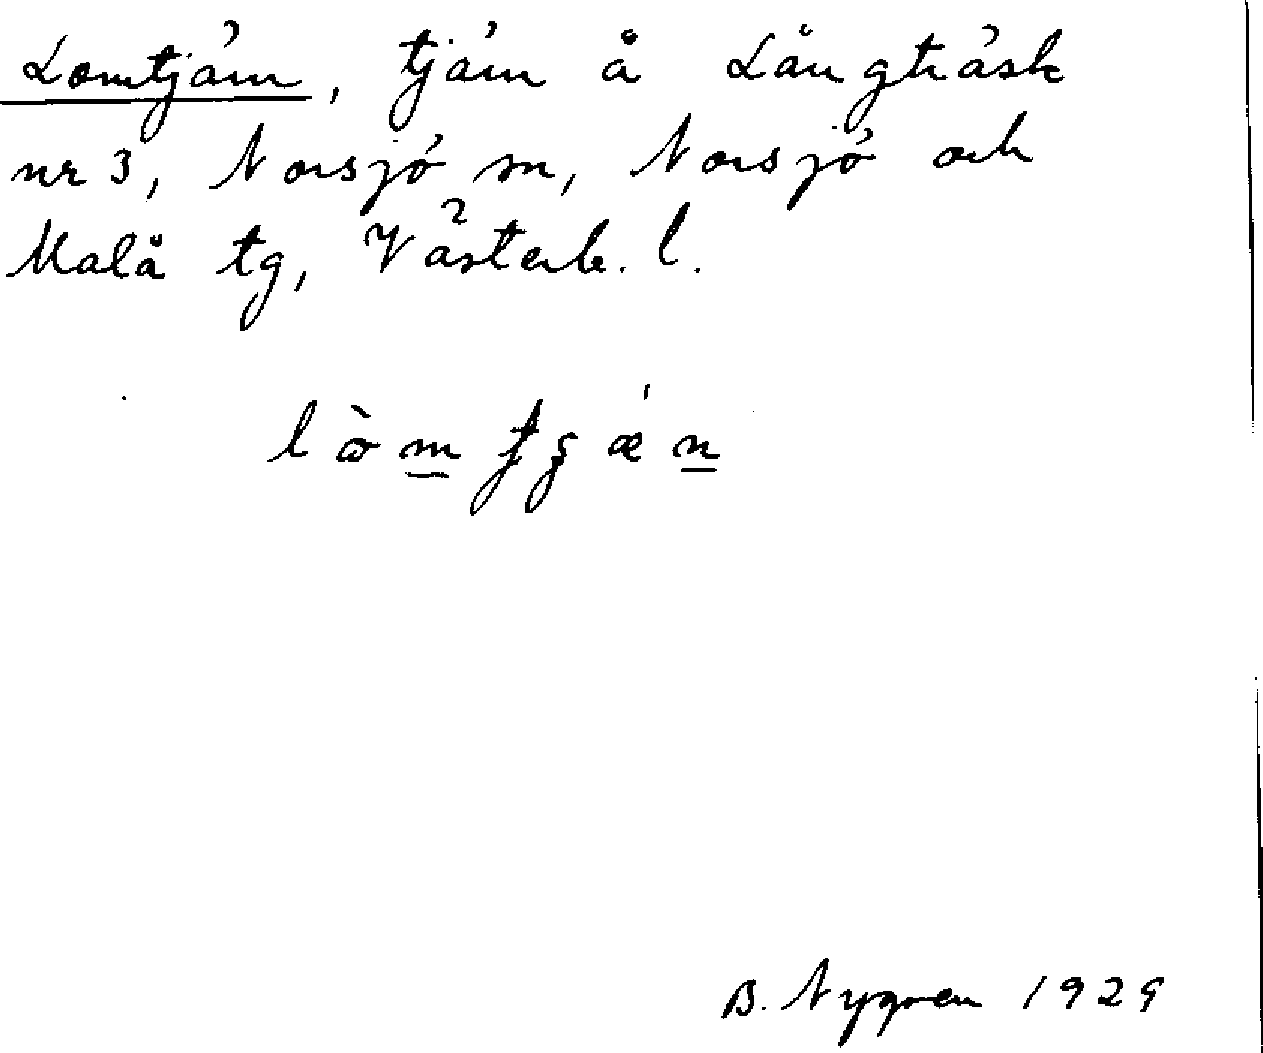 Lomtjärn, tjärn å Långträsk
nr 3, Norsjö sn, Norsjö och
Malå tg, Västerb. l.
B. Nygren 1929